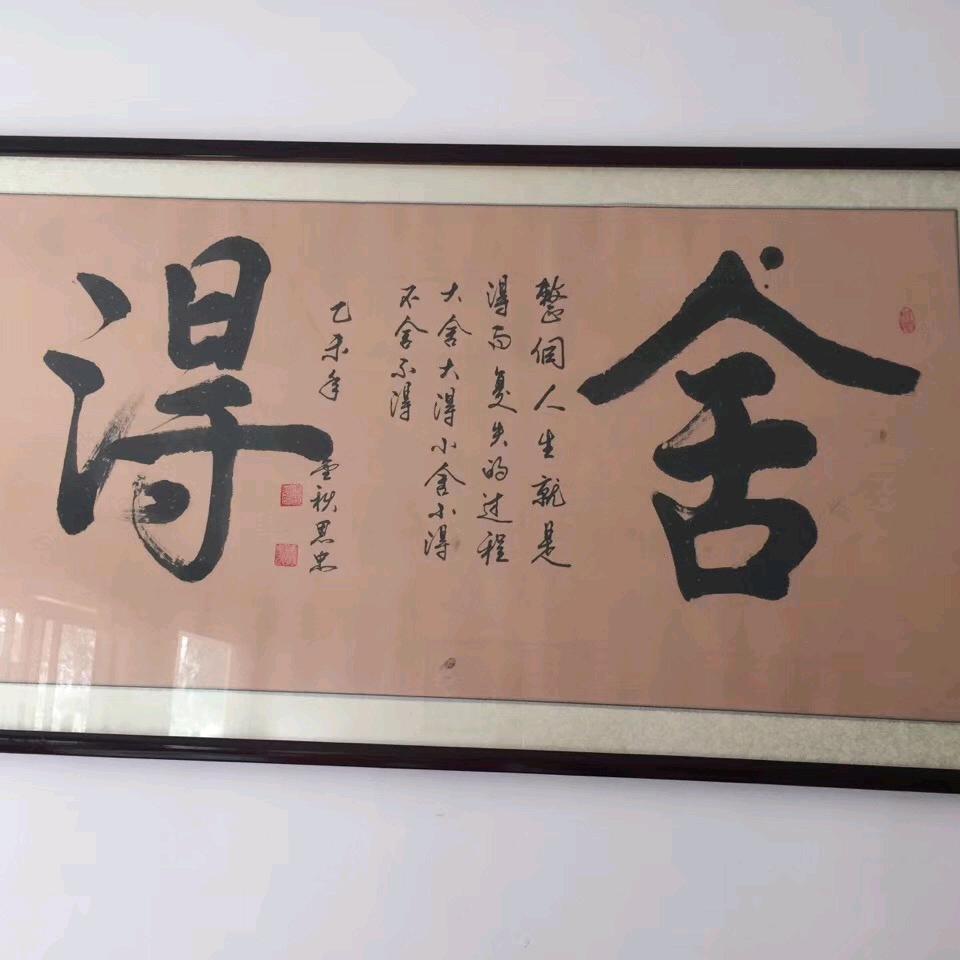 舍
整個人生就是
得而复失的过程
大舍大得小舍小得
不舍不得
乙未年
秋思忠
得